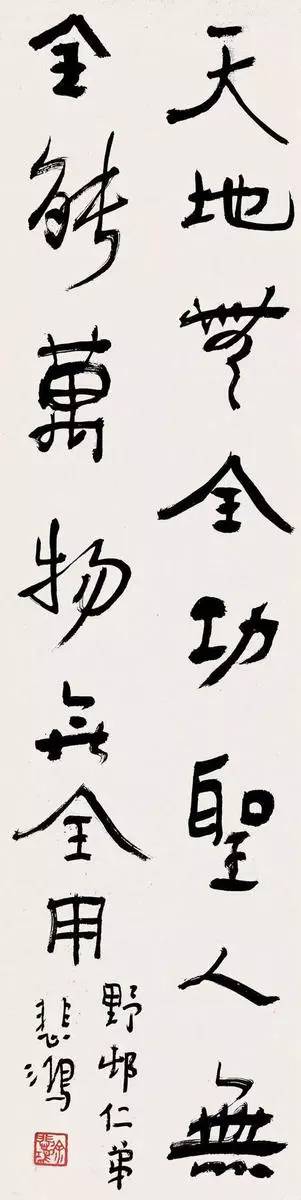 天地無全功聖人無
全能萬物無全用
野邨仁弟
悲鴻